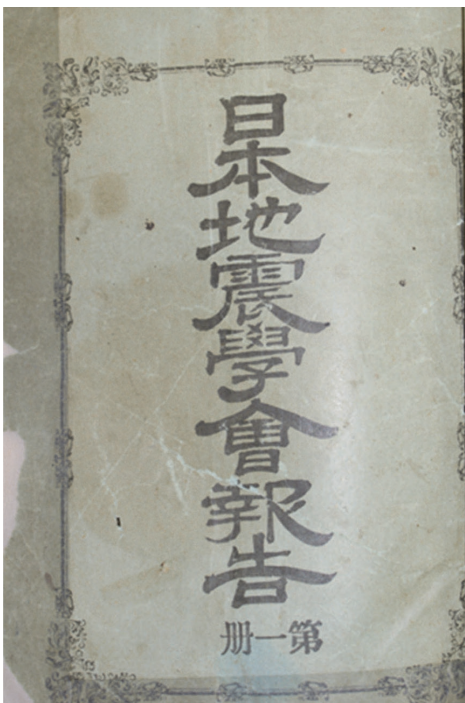 日本地震學會報告
第一册